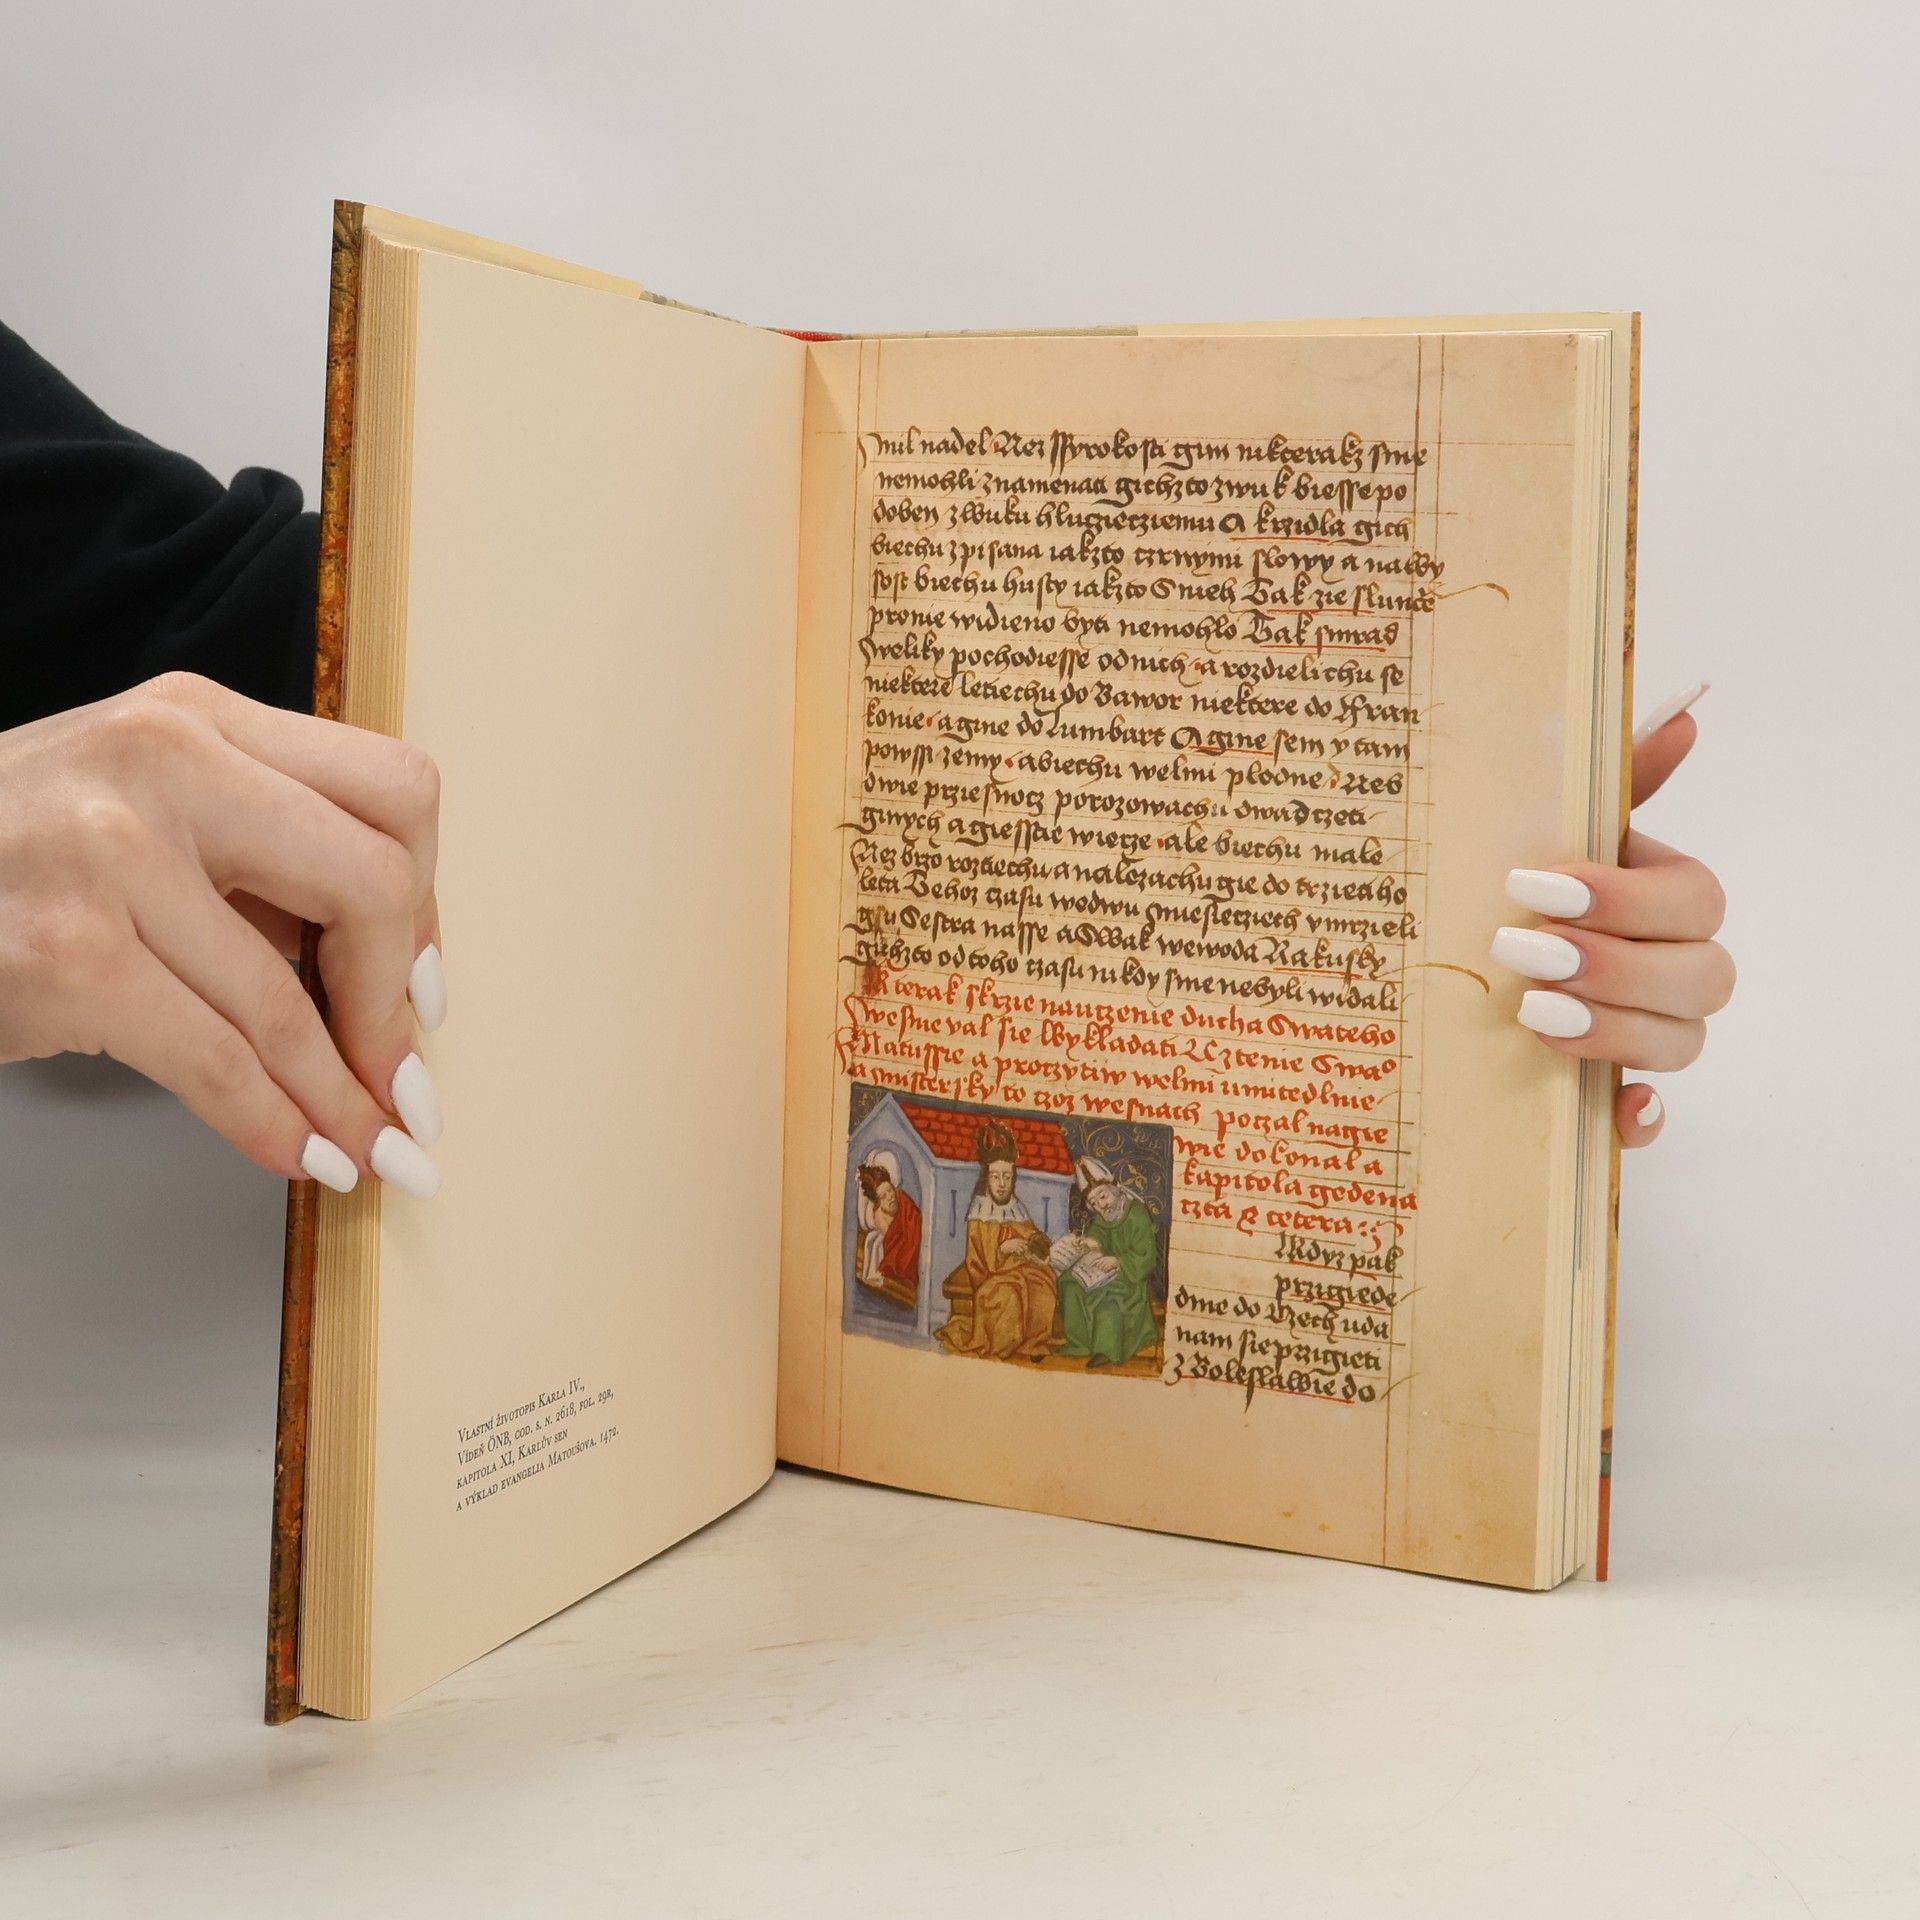 Vlastní životopis Karla IV.,
Vídeň ÖNB, cod. s. n. 2618, fol. 29r,
kapitola XI, Karlův sen
a výklad evangelia Matoušova. 1472.
mil nadel Nez ssyrokosti gim nikterakz sme
nemohli znamenati gichzto zwuk biesse po
doben zwuku hluczieciemu A krzidla gich
biechu zpisana iakzto czrnymi slowy a nawy
sost biechu husty iakzto Snieh Tak zie slunce
pronie widieno byti nemohlo Tak smrad
weliky pochodiesse odnich a rozdielichu se
niektere letiechu do Bawor niektere do Ffran
konie a gine do Lumbart A gine sem y tam
powssi zemy a biechu welmi plodne Neb
dwie prziesnocz porozowachu dwadczeti
ginych a giesstie wiecze ale biechu male
Nez brzo roztiechu a nalezachu gie do trzietiho
leta Tehoz czasu wedwu miesieciech vmrzieli
gsu Sestra nasse a Swak wewoda Rakusky
gichzto od toho czasu nikdy sme nebyli widali
Kterak skrzie nauczenie ducha Swateho
wesnie val sie wykladati Cztenie Swa°
Matussie a proczytiw welmi umitedlnie
a mistersky to czoz wesnach poczal nagie
wie dokonal a
kapitola gedena
czta & cetera
Kdyz pak
przigiede
dme do Czech uda
nam sie przigieti
z Boleslawie do